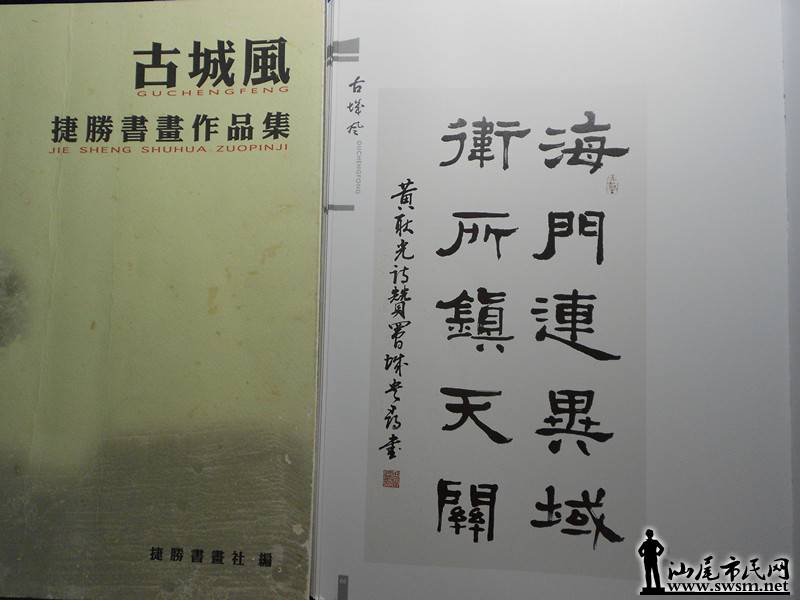 古城風
GUCHENGFENG
捷勝書畫作品集
JIE SHENG SHUHUA ZUOPINJI
捷勝書畫社·編
古城风
GUCHENGFONG
海門連異域
衛所鎮天關
黄耿光诗赞
書
汕尾市民网
www.swsm.net